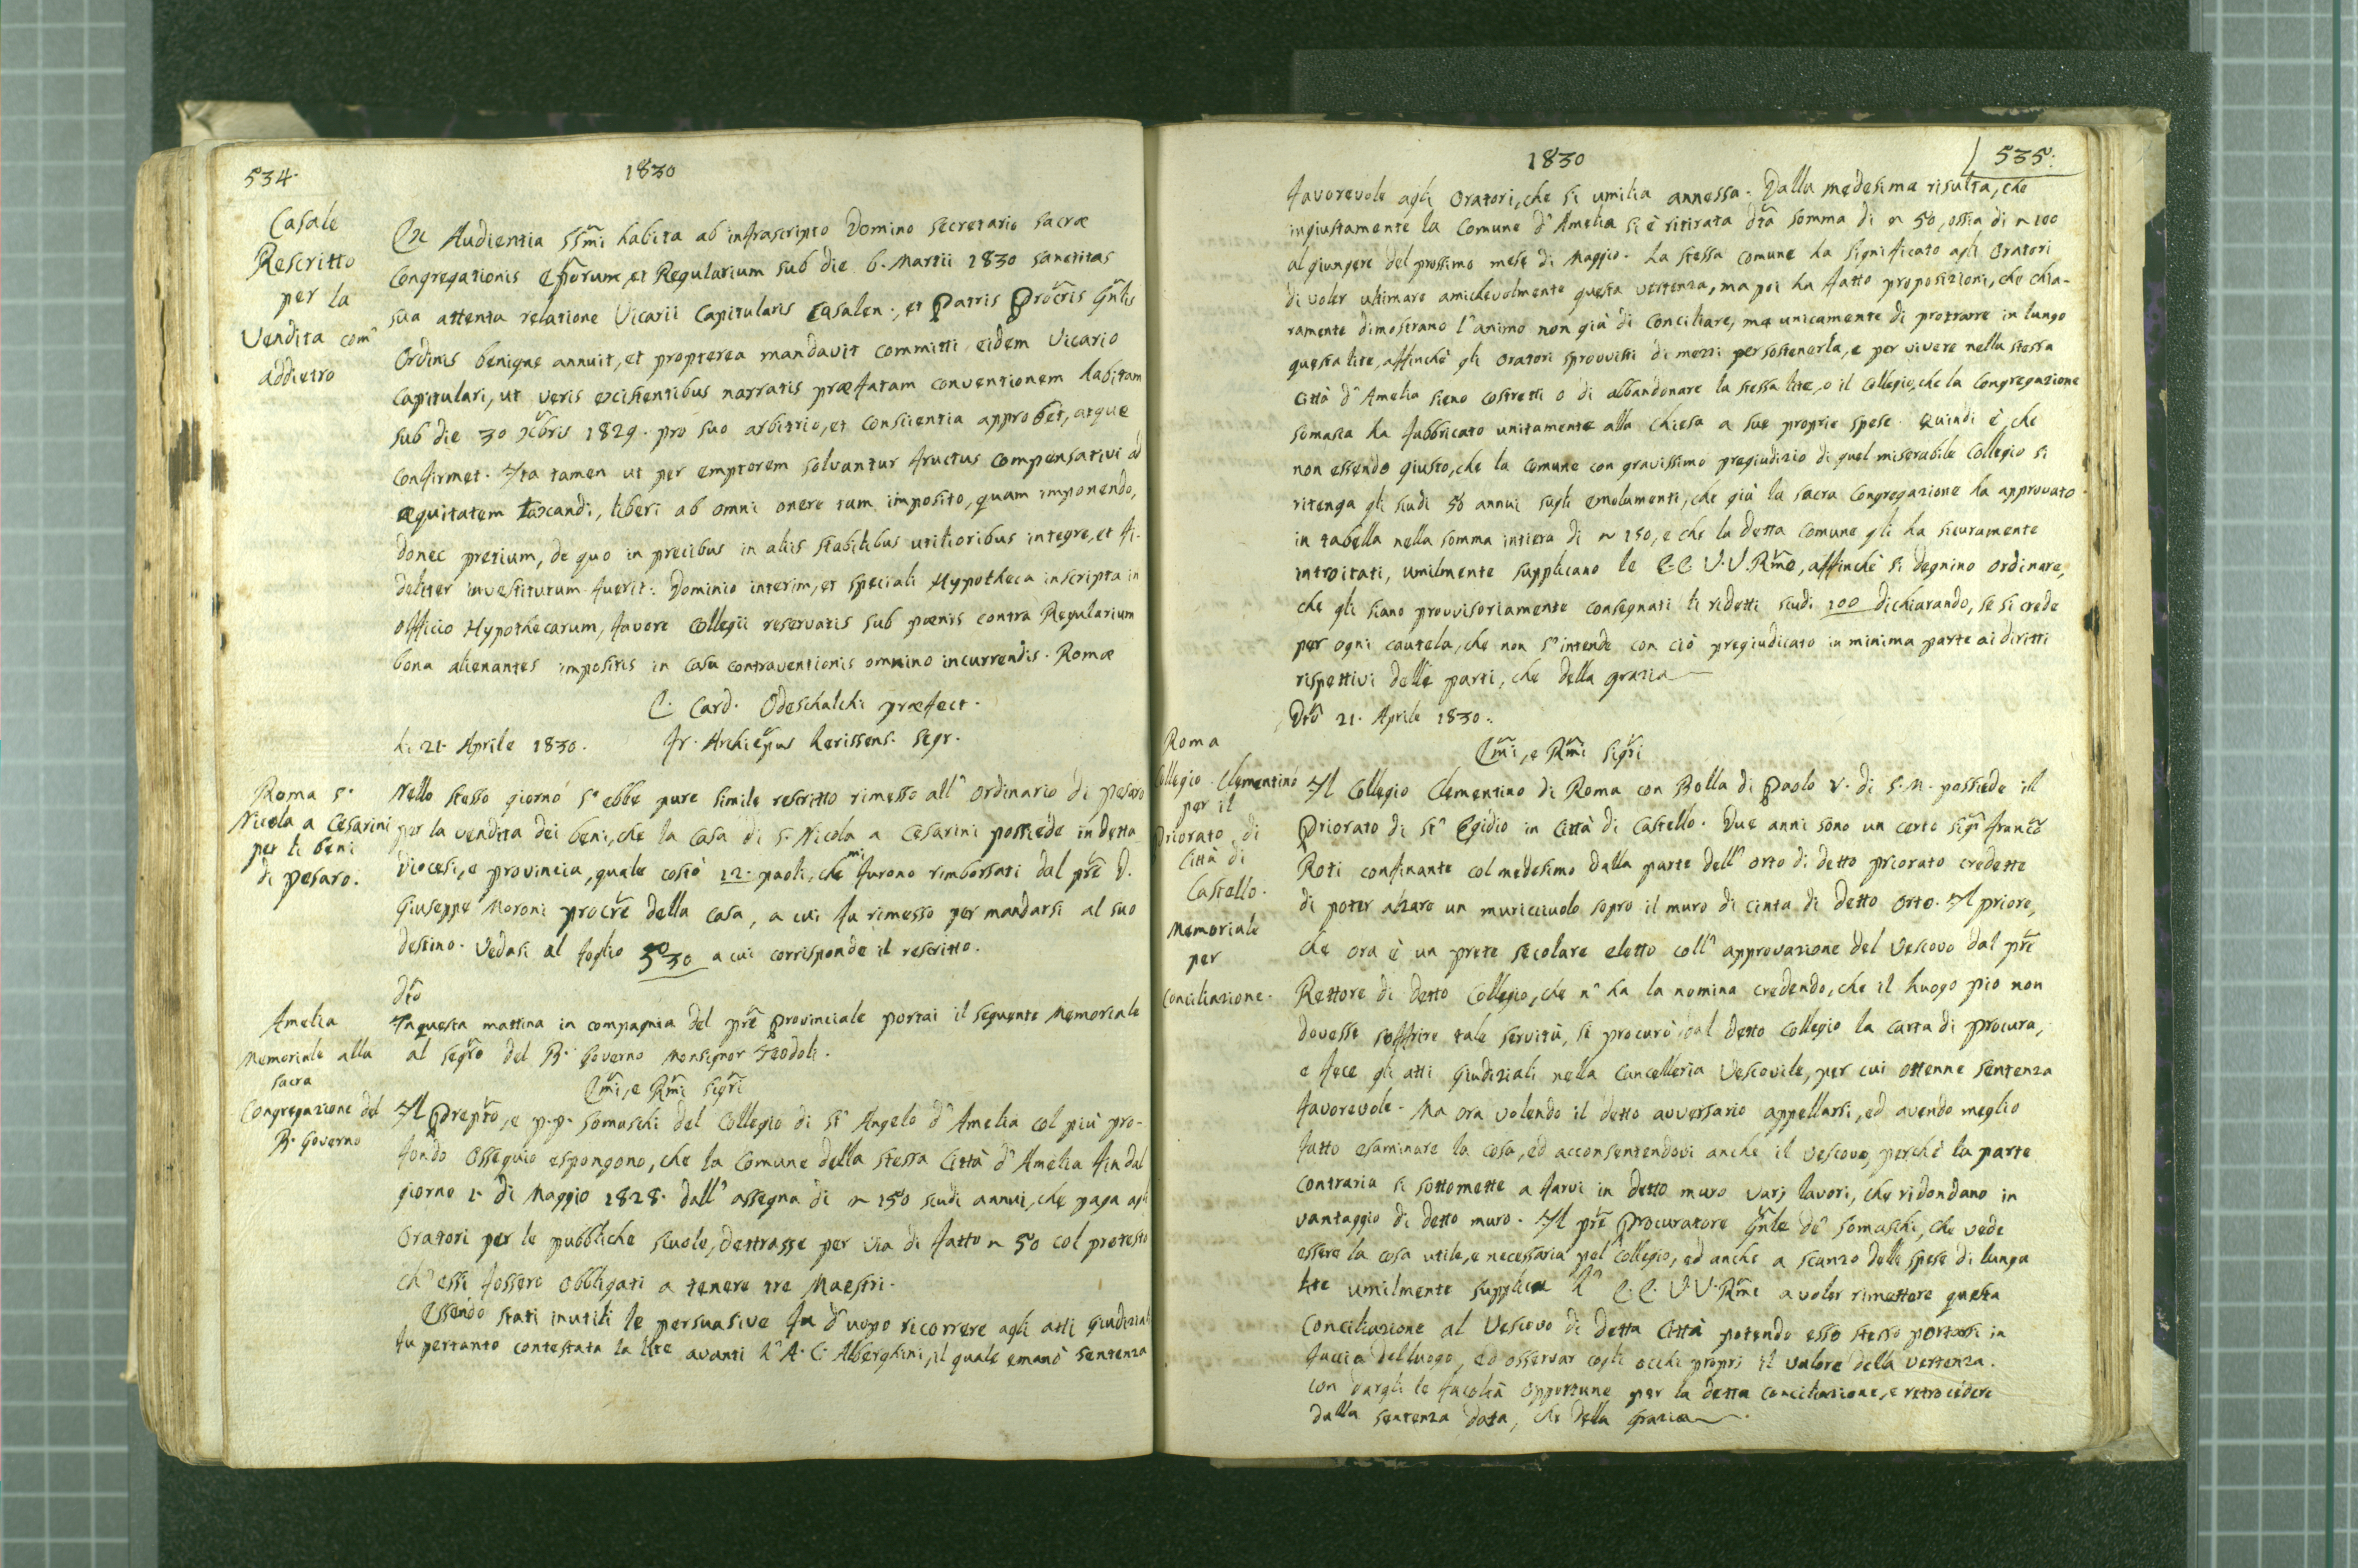 534.
1830
Casale
Rescritto
per la
Vendita com'
addietro
Ex Audientia SSmi habita ab infrascripto Domino Secretario Sacræ
Congregationis Epporum, et Regularium sub die 6. Martii 1830 Sanctitas
sua attenta relatione Vicarii Capitularis Casalen., et Patris Procris Gnlis
Ordinis benigne annuit, et propterea mandavit committi eidem Vicario
Capitulari, ut veris existentibus narratis præfatam conventionem habitam
sub die 30 Xbris 1829. pro suo arbitrio, et conscientia approbet, atque
confirmet. Ita tamen ut per emptorem solvantur fructus compensativi ad
æquitatem taxandi, liberi ab omni onere tam imposito, quam imponendo,
donec pretium, de quo in precibus in aliis stabilibus utilioribus integre, et fi-
deliter investitutum fuerit: Dominio interim, et speciali Hypotheca inscripta in
officio Hypothecarum, favore Collegii reservatis sub pœnis contra Regularium
bona alienantes impositis in casu contraventionis omnino incurrendis. Romæ
C. Card. Odeschalchi præfect.
li 21. Aprile 1830. Fr. Archiepus Lerissens. Segr.
Roma S.
Nicola a Cesarini
per li beni
di Pesaro.
Nello stesso giorno s'ebbe pure simile rescritto rimesso all'Ordinario di Pesaro
per la vendita dei beni, che la Casa di S. Nicola a Cesarini possiede in detta
Diocesi, e provincia, quale costò 12. paoli, che mi furono rimborsati dal pre D.
Giuseppe Moroni procre della casa, a cui fu rimesso per mandarsi al suo
destino. Vedasi al foglio 530 a cui corrisponde il rescritto.
Dto
Amelia
Memoriale alla
sacra
Congregazione del
B. Governo
In questa mattina in compagnia del pre Provinciale portai il seguente Memoriale
al Segrio del B. Governo Monsignor Teodoli.
Emi, e Rmi Sigri
Il Prepto, e p.p. Somaschi del Collegio di St' Angelo d'Amelia col più pro-
fondo ossequio espongono, che la Comune della stessa Città d'Amelia fin dal
giorno 1. di Maggio 1828. dall'assegna di 150 scudi annui, che paga agli
Oratori per le pubbliche scuole, dettrasse per via di fatto 50 col pretesto
ch'essi fossero obbligati a tenere tre Maestri.
Essendo stati inutili le persuasive fu d'uopo ricorrere agli atti Giudiziali
fu pertanto contestata la lite avanti l'A.C. Alberghini, il quale emanò sentenza
1830
535:
favorevole agli Oratori, che si umilia annessa. Dalla medesima risulta, che
ingiustamente la Comune d'Amelia si è ritirata dta somma di 50, ossia di 100
al giungere del prossimo mese di Maggio. La stessa Comune ha significato agli Oratori
di voler ultimare amichevolmente questa vertenza, ma poi ha fatto proposizioni, che chia-
ramente dimostrano l'animo non già di conciliare, ma unicamente di protrarre in lungo
questa lite, affinchè gli Oratori sprovvisti di mezzi per sostenerla, e per vivere nella stessa
Città d'Amelia sieno costretti o di abbandonare la stessa lite, o il Collegio, che la Congregazione
Somasca ha fabbricato unitamente alla Chiesa a sue proprie spese. Quindi è, che
non essendo giusto, che la Comune con gravissimo pregiudizio di quel miserabile Collegio si
ritenga gli scudi 50 annui sugli emolumenti, che già la Sacra Congregazione ha approvato
in tabella nella somma intiera di 150, e che la detta Comune gli ha sicuramente
introitati, umilmente supplicano le E.E. V.V. Rme, affinchè si degnino ordinare,
che gli siano provvisoriamente consegnati li ridetti scudi 100 dichiarando, se si crede
per ogni cautela, che non s'intende con ciò pregiudicato in minima parte ai diritti
rispettivi delle parti, che della grazia
Dto 21. Aprile 1830.
Roma
Collegio Clementino
per il
Priorato di
Città di
Castello.
Memoriale
per
Conciliazione.
Emi, e Rmi Sigri
Il Collegio Clementino di Roma con Bolla di Paolo V. di S.M. possiede il
Priorato di St' Egidio in Città di Castello. Due anni sono un certo Sigr Franco
Roti confinante col medesimo dalla parte dell'orto di detto priorato credette
di poter alzare un muricciuolo sopro il muro di cinta di detto Orto. Il priore,
che ora è un prete secolare eletto coll'approvazione del Vescovo dal pre
Rettore di detto Collegio, che n'ha la nomina credendo, che il luogo pio non
dovesse soffrire tale servitù, si procurò dal detto Collegio la carta di procura,
e fece gli atti Giudiziali nella Cancelleria Vescovile, per cui ottenne sentenza
favorevole. Ma ora volendo il detto avversario appellarsi, ed avendo meglio
fatto esaminare la cosa, ed acconsentendovi anche il Vescovo, perchè la parte
contraria si sottomette a farvi in detto muro varj lavori, che ridondano in
vantaggio di detto muro. Il pre Procuratore Gnle de' Somaschi, che vede
essere la cosa utile, e necessaria pel Collegio, ed anche a scanzo delle spese di lunga
lite umilmente supplica l' E.E. V.V. Rme a voler rimettere questa
Conciliazione al Vescovo di detta Città potendo esso stesso portarsi in
faccia del luogo, ed osservar cogli occhi proprj il valore della vertenza.
con dargli le facoltà opportune per la detta conciliazione, e retrocedere
dalla sentenza data, che della grazia